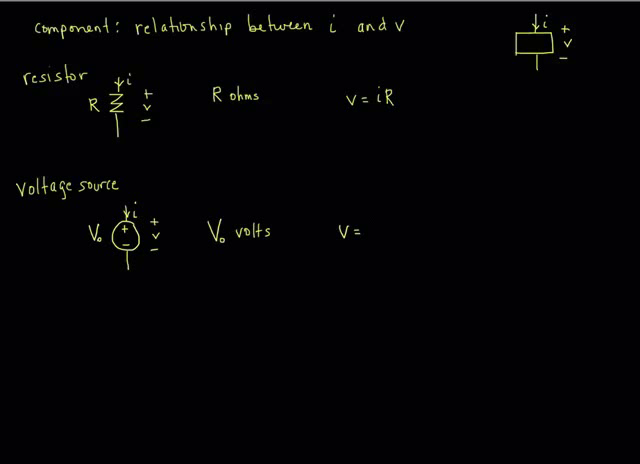 component: relationship between i and v
i
+
v
−
resistor
i
R
+
v
−
R ohms
v = iR
Voltage source
i
V₀
+
−
+
v
−
V₀ volts
v =